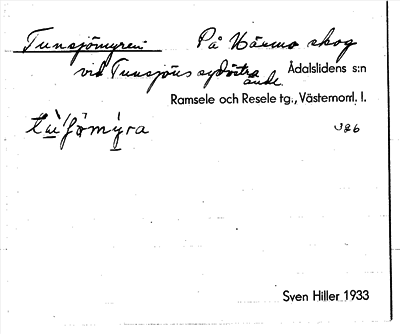 Tunsjömyren På Värmo skog
vid Tunsjöns sydöstra ände. Ådalslidens s:n
Ramsele och Resele tg., Västernorrl. l.
386
Sven Hiller 1933